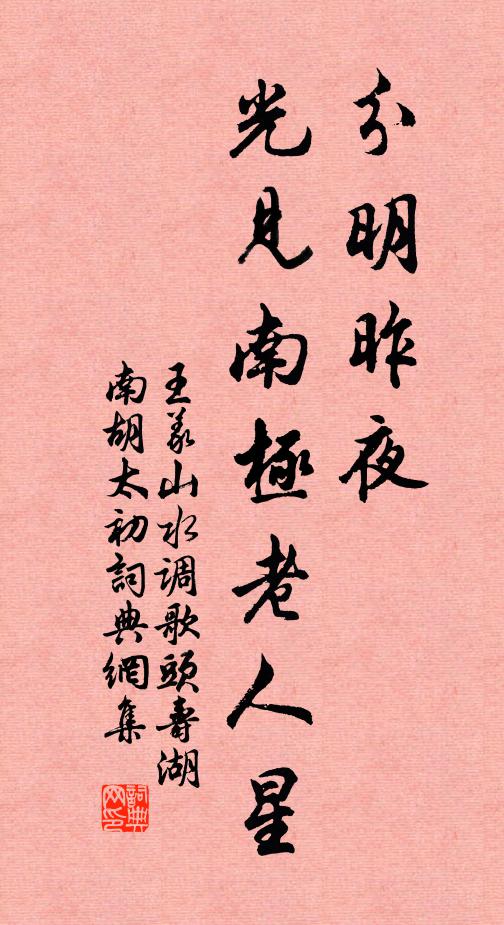 分明昨夜
光見南極老人星
王義山水調歌頭壽湖
南胡太初詞典網集
詞典
网印